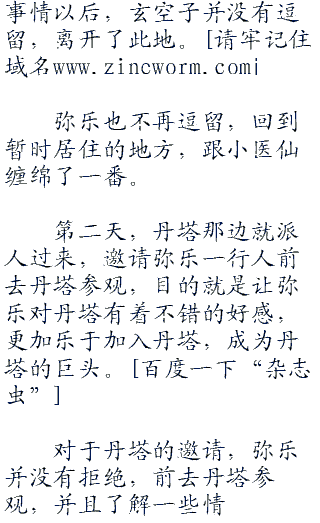 事情以后，玄空子并没有逗
留，离开了此地。[请牢记住
域名www.zincworm.com|
弥乐也不再逗留，回到
暂时居住的地方，跟小医仙
缠绵了一番。
第二天，丹塔那边就派
人过来，邀请弥乐一行人前
去丹塔参观，目的就是让弥
乐对丹塔有着不错的好感，
更加乐于加入丹塔，成为丹
塔的巨头。[百度一下“杂志
虫”]
对于丹塔的邀请，弥乐
并没有拒绝，前去丹塔参
观，并且了解一些情